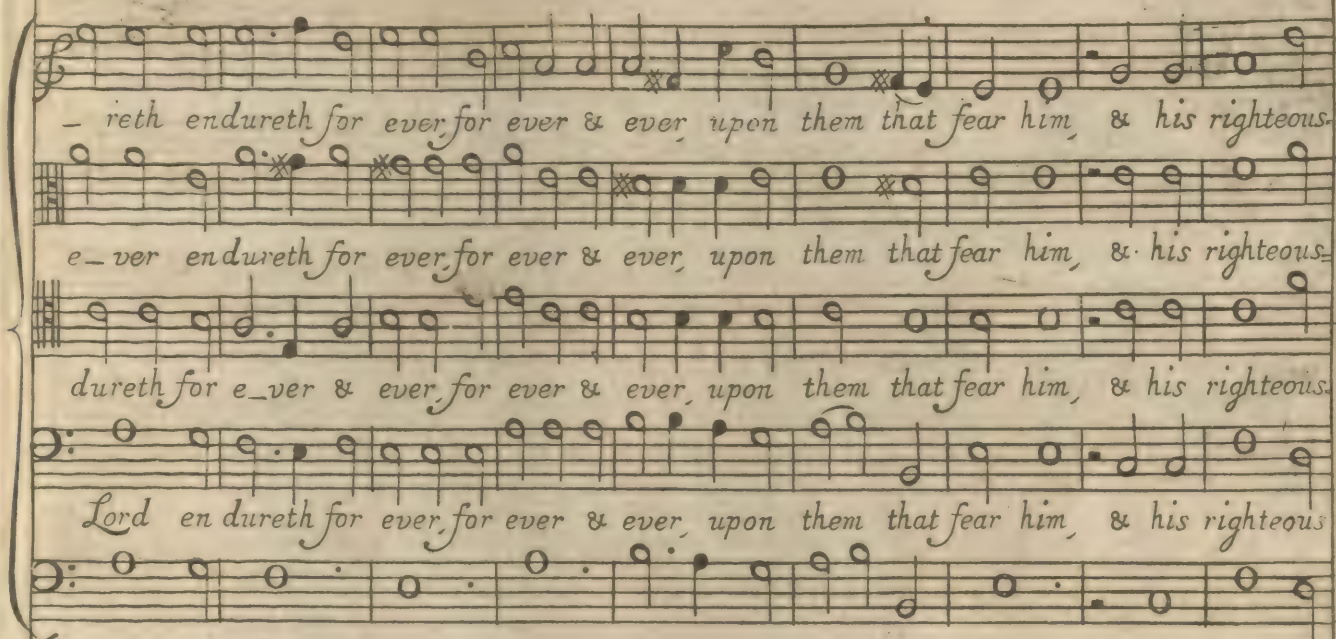 _ reth endureth for ever, for ever & ever, upon them that fear him, & his righteous-
e_ver endureth for ever, for ever & ever, upon them that fear him, &. his righteous=
dureth for e_ver & ever, for ever & ever, upon them that fear him, & his righteous-
Lord en dureth for ever, for ever & ever, upon them that fear him, & his righteous